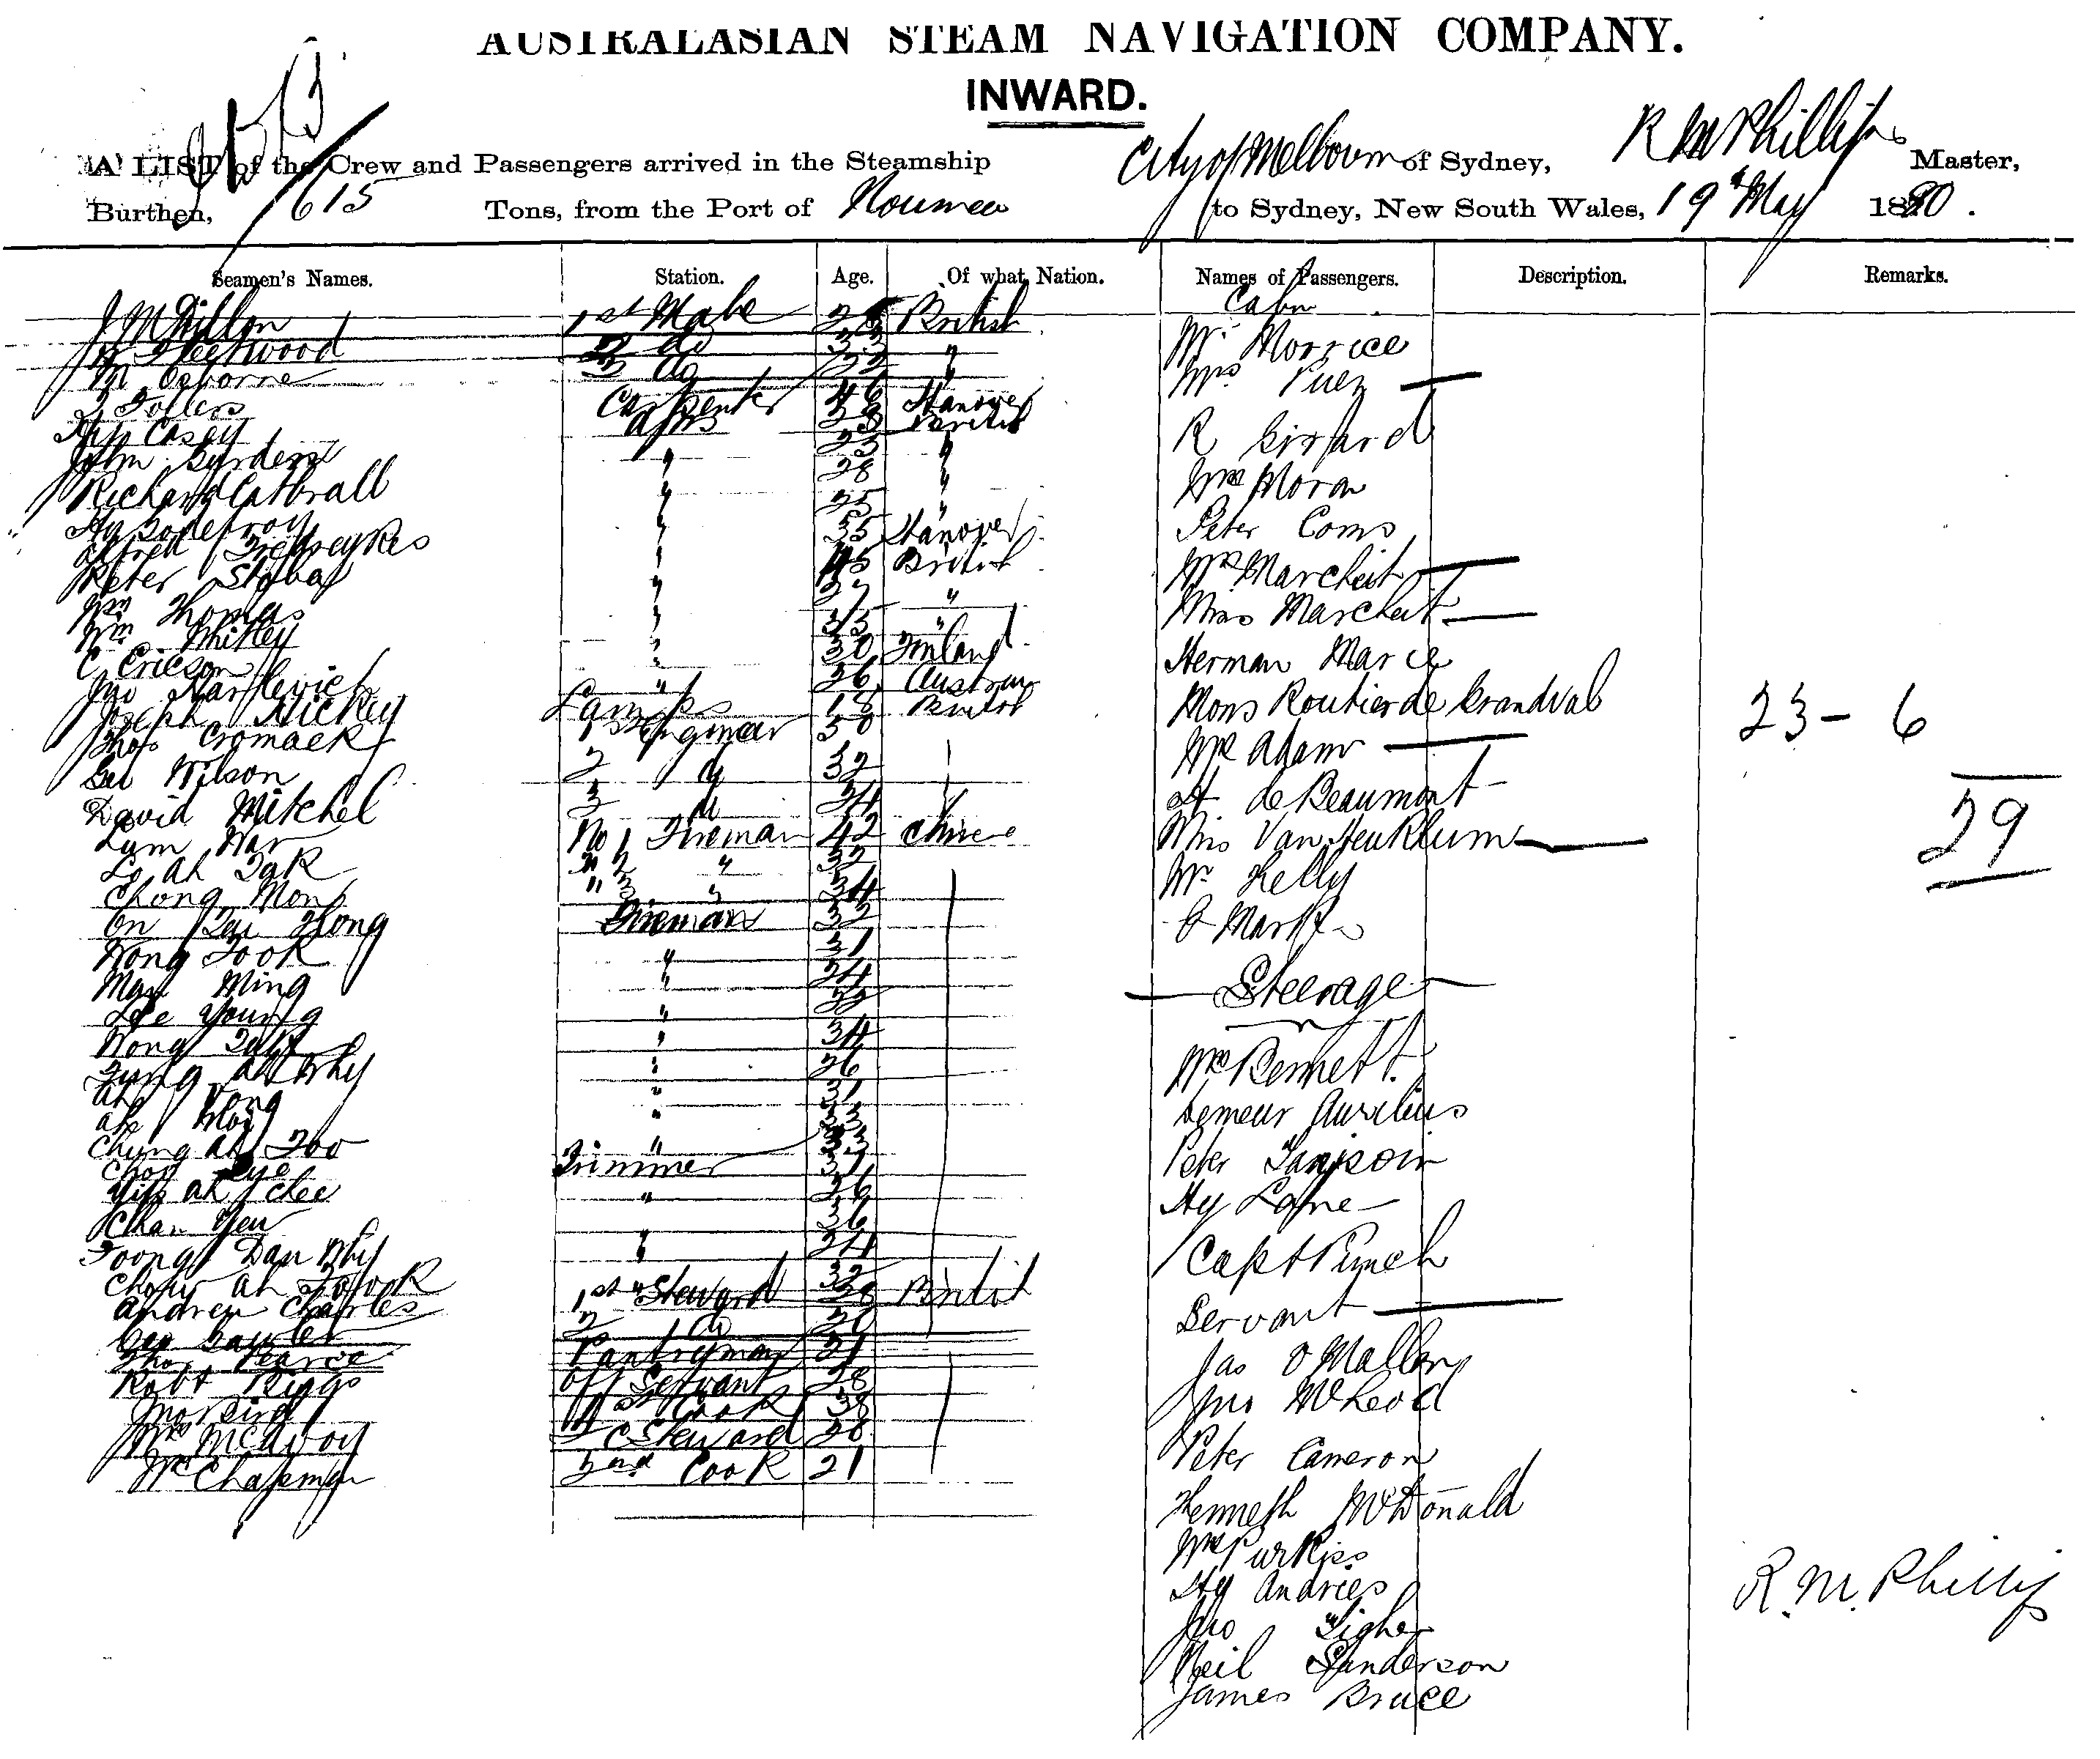 AUSTRALASIAN STEAM NAVIGATION COMPANY.
INWARD.
A LIST of the Crew and Passengers arrived in the Steamship City of Melbourne of Sydney, R M Phillips Master,
Burthen, 615 Tons, from the Port of Noumea to Sydney, New South Wales, 19th May 1880.
Seamen's Names. Station. Age. Of what Nation. Names of Passengers. Description. Remarks.
Cabin
J M Dillon 1st Mate British
Mr Morrice
Fleetwood 2 do 33 "
M Osborne 3 do 22 "
Mrs Puez
Carpenter 46 Hanover
Casey ABs 28 British
R Girard
John 23 "
Richard Catbrall " 28 "
Wm Moran
Hy Godefroy " 25 "
Peter Coms
Alfred " 35 Hanover
Peter " 45 British
Mrs Marcheit
Wm Thomas " 27 "
Miss Marcheit
Wm Whitley " 35 "
C Ericson " 30 Finland
Herman Marce
Jno " 26 Austrian
Joseph Hickey Lamps 18 British
Mons Routier de Grandval
23 - 6
Thos Cromack 1st Engineer 30
Mrs Adam
Geo Wilson 2 do 32
29
David Mitchel 3 do 24
Lt de Beaumont
Lum War No 1 Fireman 42 Chinese
Miss Van Heuklum
Lo Ah Tak No 2 " 32
Mr Kelly
Chong Mong " 3 " 34
On Tau Hong Fireman 32
Marks
Wong Fook " 31
Man Ming " 24
Steerage
Lee Young " 32
Wong " 34
Ah Why " 26
Mrs Bennett
Ah Vong " 31
Ah Moy " 33
Demeur Aurelius
Chung Ah Foo " 33
Peter
Choy Lye Trimmer 31
Yip Ah Chee " 26
Hy Lane
Chan Yeu 36
Foong Dau Why " 24
Capt Pinch
Chow Ah 32
Andrew Charles 1st Steward 38 British
Servant
Geo 2 do 20
Thos Pearce Pantryman 21
Jas O Malley
Robt Riggs Off Servant 28
Jno McLeod
Jno Bird 1st Cook 38
Mrs McAvoy S C Steward 28
Peter Cameron
Wm Chapman 2nd Cook 21
Kenneth McDonald
Wm Purkiss
Hy Andries
R. M. Phillips
Jno Tighe
Neil Sanderson
James Bruce